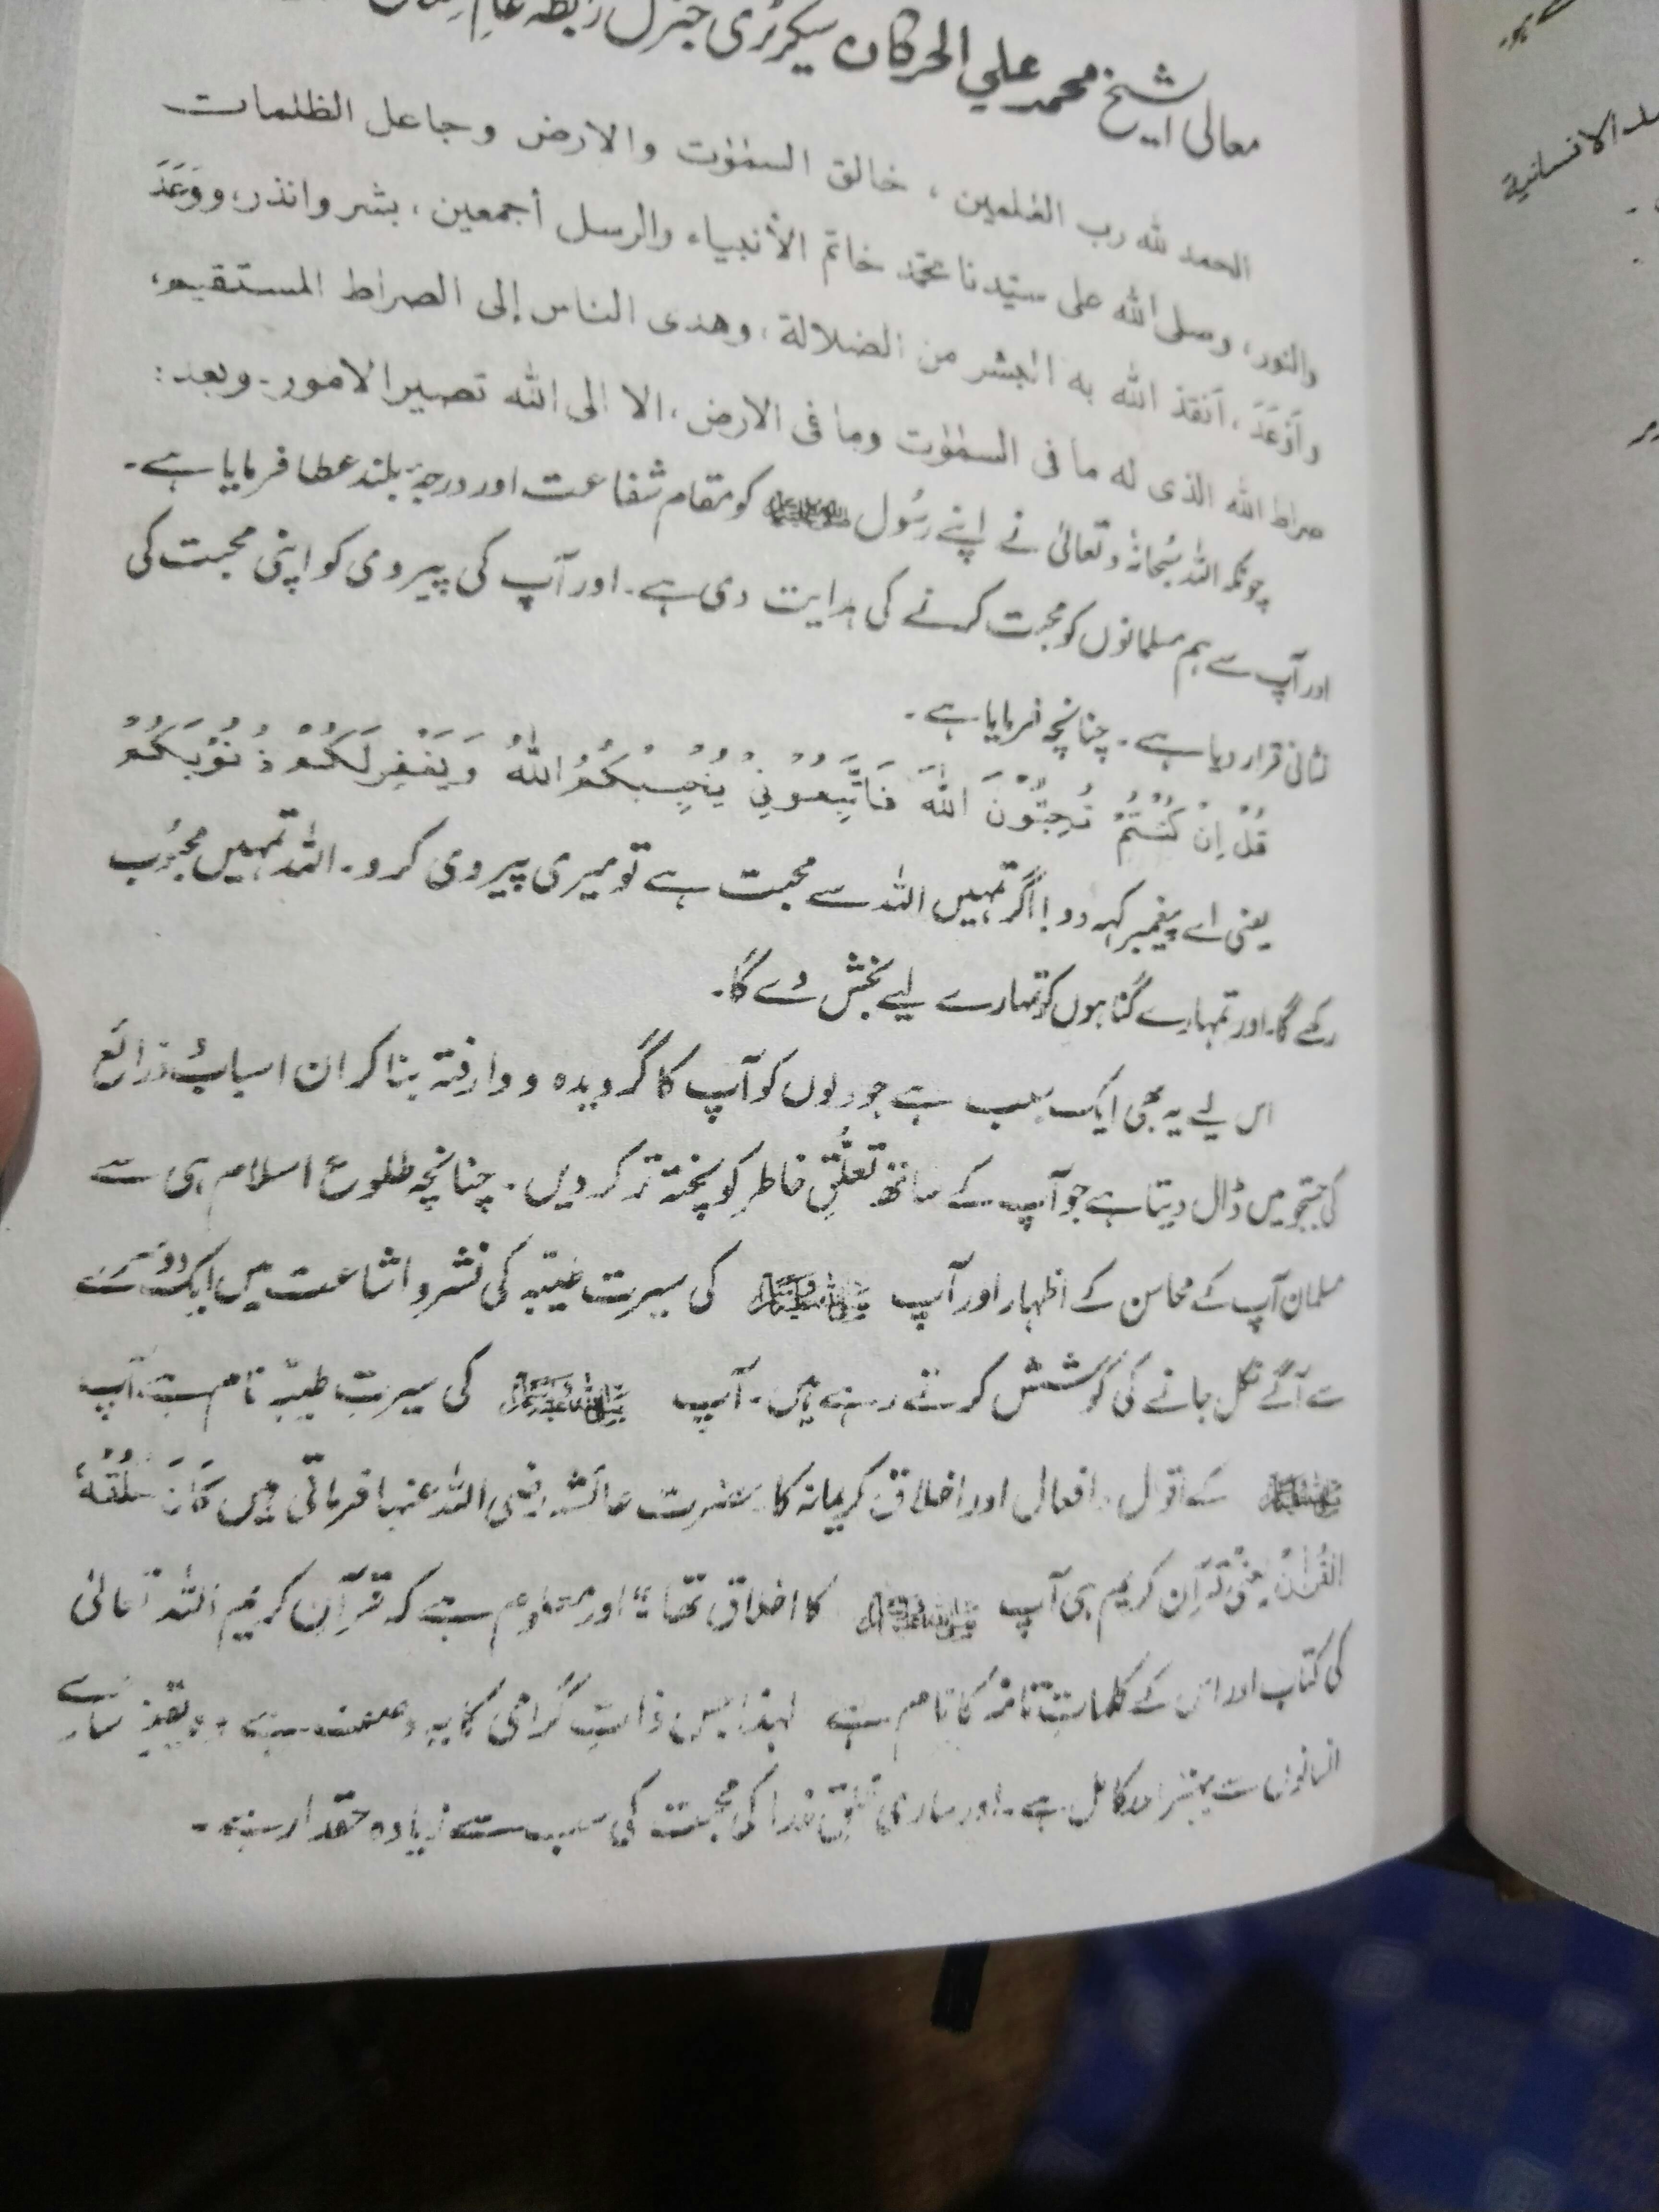 معالی الشیخ محمد علي الحركان سیکرٹری جنرل رابطہ عالم
الحمد لله رب العٰلمين ، خالق السمٰوٰت والارض وجاعل الظلمات
والنور، وصلى الله على سيّدنا محمّد خاتم الأنبياء والرسل أجمعين ، بشر وانذر، ووَعَدَ
وأَوْعَدَ ، أنقذ الله به البشر من الضلالة ، وهدى الناس إلى الصراط المستقيم،
صراط الله الذى له ما فى السمٰوٰت وما فى الارض ، الا الى الله تصير الامور۔ وبعد:
چونکہ اللہ سُبحانہٗ وتعالیٰ نے اپنے رسُول ﷺ کو مقام شفاعت اور درجۂ بلند عطا فرمایا ہے۔
اور آپ سے ہم مسلمانوں کو محبت کرنے کی ہدایت دی ہے۔ اور آپ کی پیروی کو اپنی محبت کی
نشانی قرار دیا ہے۔ چنانچہ فرمایا ہے۔
قُلْ اِنْ كُنْتُمْ تُحِبُّوْنَ اللّٰهَ فَاتَّبِعُوْنِيْ يُحْبِبْكُمُ اللّٰهُ وَيَغْفِرْلَكُمْ ذُنُوْبَكُمْ
یعنی اے پیغمبر کہہ دو! اگر تمہیں اللہ سے محبت ہے تو میری پیروی کرو۔ اللہ تمہیں محبُوب
رکھے گا۔ اور تمہارے گناہوں کو تمہارے لیے بخش دے گا۔
اس لیے یہ بھی ایک سبب ہے جو دلوں کو آپ کا گرویدہ و وارفتہ بنا کر ان اسباب ذرائع
کی جستجو میں ڈال دیتا ہے جو آپ کے ساتھ تعلّقِ خاطر کو پختہ تر کر دیں۔ چنانچہ طلوع اسلام ہی سے
مسلمان آپ کے محاسن کے اظہار اور آپ ﷺ کی سیرت طیّبہ کی نشر و اشاعت میں ایک دوسرے
سے آگے نکل جانے کی کوشش کرتے رہے ہیں۔ آپ ﷺ کی سیرتِ طیّبہ نام ہے آپ
ﷺ کے اقوال، افعال اور اخلاق کریمانہ کا۔ حضرت عائشہ رضی اللہ عنہا فرماتی ہیں كَانَ خُلُقُهُ
القُرْاٰنَ یعنی قرآن کریم ہی آپ ﷺ کا اخلاق تھا" اور معلوم ہے کہ قرآن کریم اللہ تعالیٰ
کی کتاب اور اس کے کلماتِ تامہ کا نام ہے لہذا جس ذاتِ گرامی کا یہ وصف ہے وہ سارے
انسانوں سے بہتر اور کامل ہے۔ اور ساری خلقِ خدا کی محبت کی سب سے زیادہ حقدار ہے۔
الانسانية